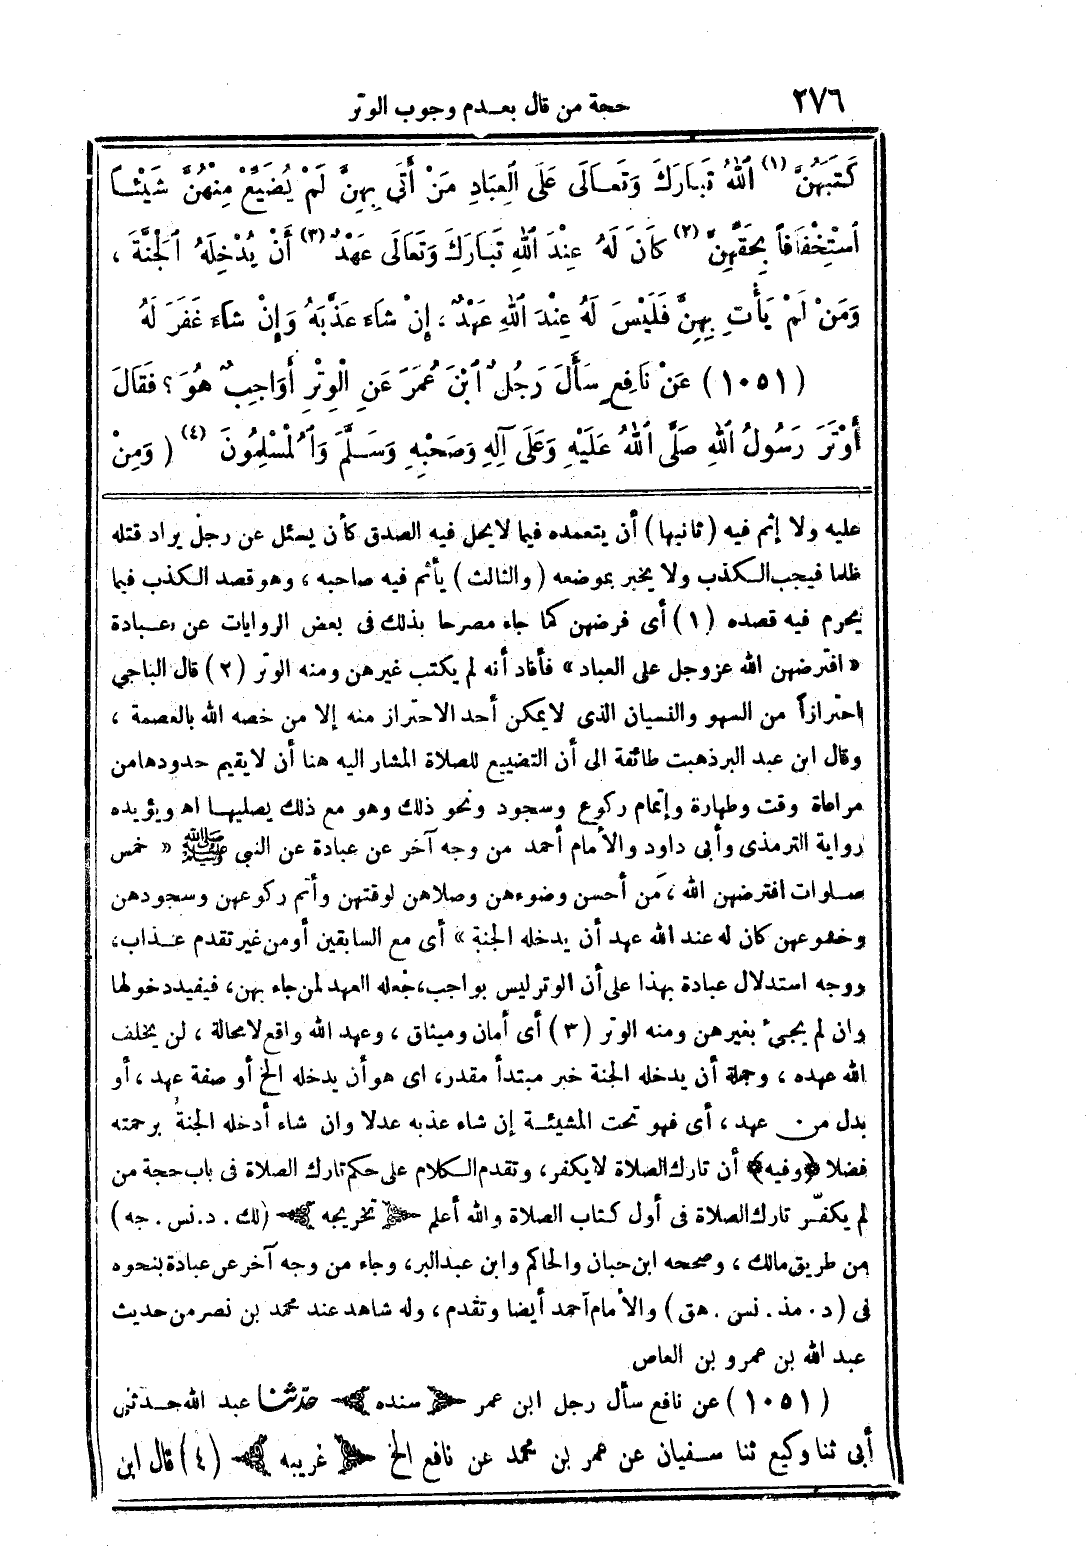 ٢٧٦ حجة من قال بعدم وجوب الوتر
كَتَبَهُنَّ (١) اللهُ تَبَارَكَ وَتَعَالَى عَلَى الْعِبَادِ مَنْ أَتَى بِهِنَّ لَمْ يُضَيِّعْ مِنْهُنَّ شَيْئًا
اسْتِخْفَافاً بِحَقِّهِنَّ (٢) كَانَ لَهُ عِنْدَ اللهِ تَبَارَكَ وَتَعَالَى عَهْدٌ (٣) أَنْ يُدْخِلَهُ الْجَنَّةَ ،
وَمَنْ لَمْ يَأْتِ بِهِنَّ فَلَيْسَ لَهُ عِنْدَ اللهِ عَهْدٌ ، إِنْ شَاءَ عَذَّبَهُ وَإِنْ شَاءَ غَفَرَ لَهُ
(١٠٥١) عَنْ نَافِعٍ سَأَلَ رَجُلٌ ابْنَ عُمَرَ عَنِ الْوِتْرِ أَوَاجِبٌ هُوَ ؟ فَقَالَ
أَوْتَرَ رَسُولُ اللهِ صَلَّى اللهُ عَلَيْهِ وَعَلَى آلِهِ وَصَحْبِهِ وَسَلَّمَ وَالْمُسْلِمُونَ (٤) ( وَمِنْ
عليه ولا إثم فيه (ثانيها) أن يتعمده فيما لايحل فيه الصدق كأن يسئل عن رجل يراد قتله
ظلما فيجب الكذب ولا يخبر بموضعه (والثالث) يأثم فيه صاحبه ، وهو قصد الكذب فيما
يحرم فيه قصده (١) أى فرضهن كما جاء مصرحا بذلك فى بعض الروايات عن عبادة
« افترضهن الله عزوجل على العباد » فأفاد أنه لم يكتب غيرهن ومنه الوتر (٢) قال الباجي
احترازاً من السهو والنسيان الذى لايمكن أحد الاحتراز منه إلا من خصه الله بالعصمة ،
وقال ابن عبد البر ذهبت طائفة الى أن التضييع للصلاة المشار اليه هنا أن لايقيم حدودها من
مراعاة وقت وطهارة وإتمام ركوع وسجود ونحو ذلك وهو مع ذلك يصليها اه ويؤيده
رواية الترمذى وأبى داود والأمام أحمد من وجه آخر عن عبادة عن النبى ﷺ « خمس
صلوات افترضهن الله ، من أحسن وضوءهن وصلاهن لوقتهن وأتم ركوعهن وسجودهن
وخشوعهن كان له عند الله عهد أن يدخله الجنة » أى مع السابقين أو من غير تقدم عذاب،
ووجه استدلال عبادة بهذا على أن الوتر ليس بواجب، جعله العهد لمن جاء بهن، فيفيد دخولها
وان لم يجىء بغيرهن ومنه الوتر (٣) أى أمان وميثاق ، وعهد الله واقع لامحالة ، لن يخلف
الله عهده ، وجملة أن يدخله الجنة خبر مبتدأ مقدر، اى هو أن يدخله الخ أو صفة عهد ، أو
بدل من عهد ، أى فهو تحت المشيئة إن شاء عذبه عدلا وان شاء أدخله الجنة برحمته
فضلا ﴿وفيه﴾ أن تارك الصلاة لا يكفر، وتقدم الكلام على حكم تارك الصلاة فى باب حجة من
لم يكفّر تارك الصلاة فى أول كتاب الصلاة والله أعلم ﴿ تخريجه ﴾ (لك . د. نس . جه )
من طريق مالك ، وصححه ابن حبان والحاكم وابن عبد البر، وجاء من وجه آخر عن عبادة بنحوه
فى (د . مذ . نس . هق) والأمام أحمد أيضا وتقدم ، وله شاهد عند محمد بن نصر من حديث
عبد الله بن عمرو بن العاص
(١٠٥١) عن نافع سأل رجل ابن عمر ﴿ سنده ﴾ حدّثنا عبد الله حدثنى
أبى ثنا وكيع ثنا سفيان عن عمر بن محمد عن نافع الخ ﴿ غريبه ﴾ (٤) قال ابن